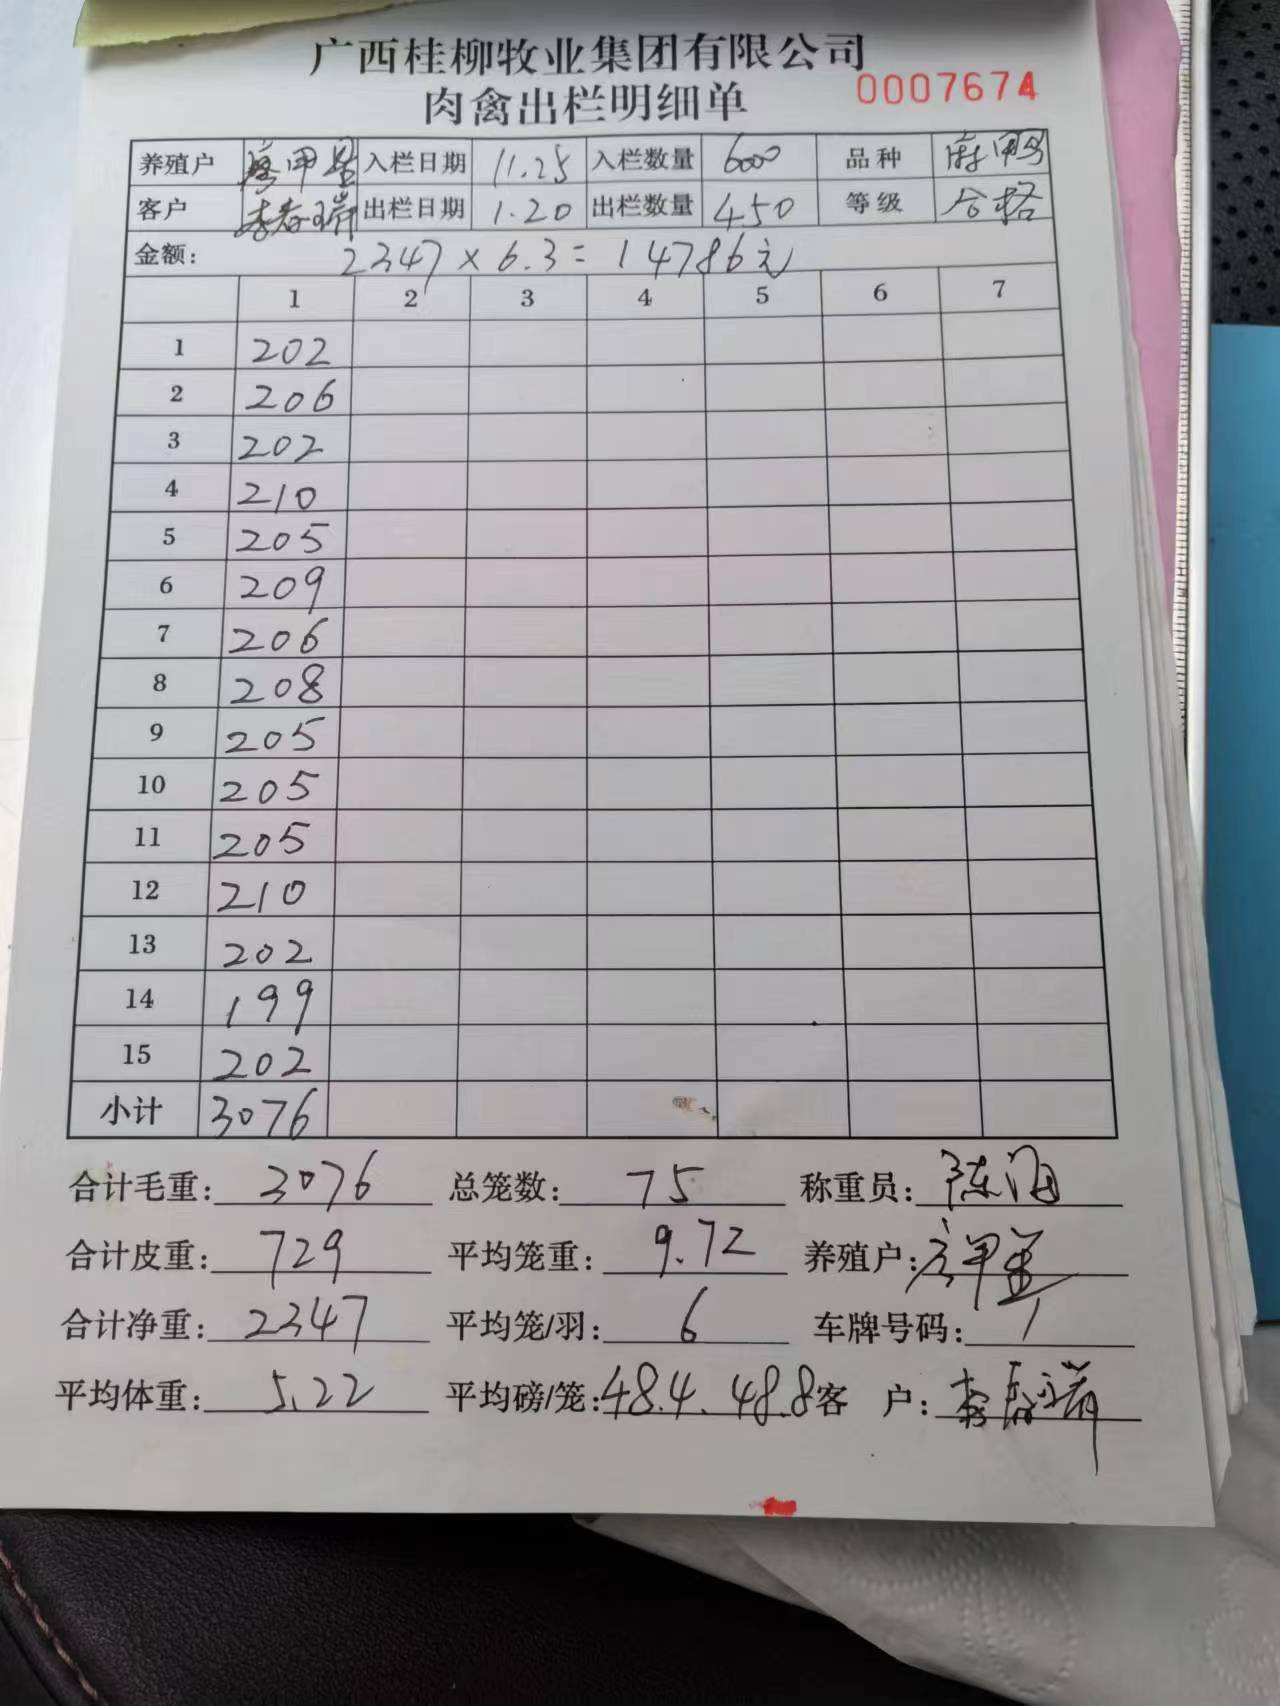 广西桂柳牧业集团有限公司
肉禽出栏明细单 0007674
养殖户 甲 入栏日期 11.25 入栏数量 6000 品种 麻鸭
客户 李春瑞 出栏日期 1.20 出栏数量 450 等级 合格
金额: 2347 × 6.3 = 14786元
1 2 3 4 5 6 7
1 202
2 206
3 202
4 210
5 205
6 209
7 206
8 208
9 205
10 205
11 205
12 210
13 202
14 199
15 202
小计 3076
合计毛重: 3076 总笼数: 75 称重员: 陈海
合计皮重: 729 平均笼重: 9.72 养殖户:
合计净重: 2347 平均笼/羽: 6 车牌号码: /
平均体重: 5.22 平均磅/笼: 48.4. 48.8 客 户: 李春瑞